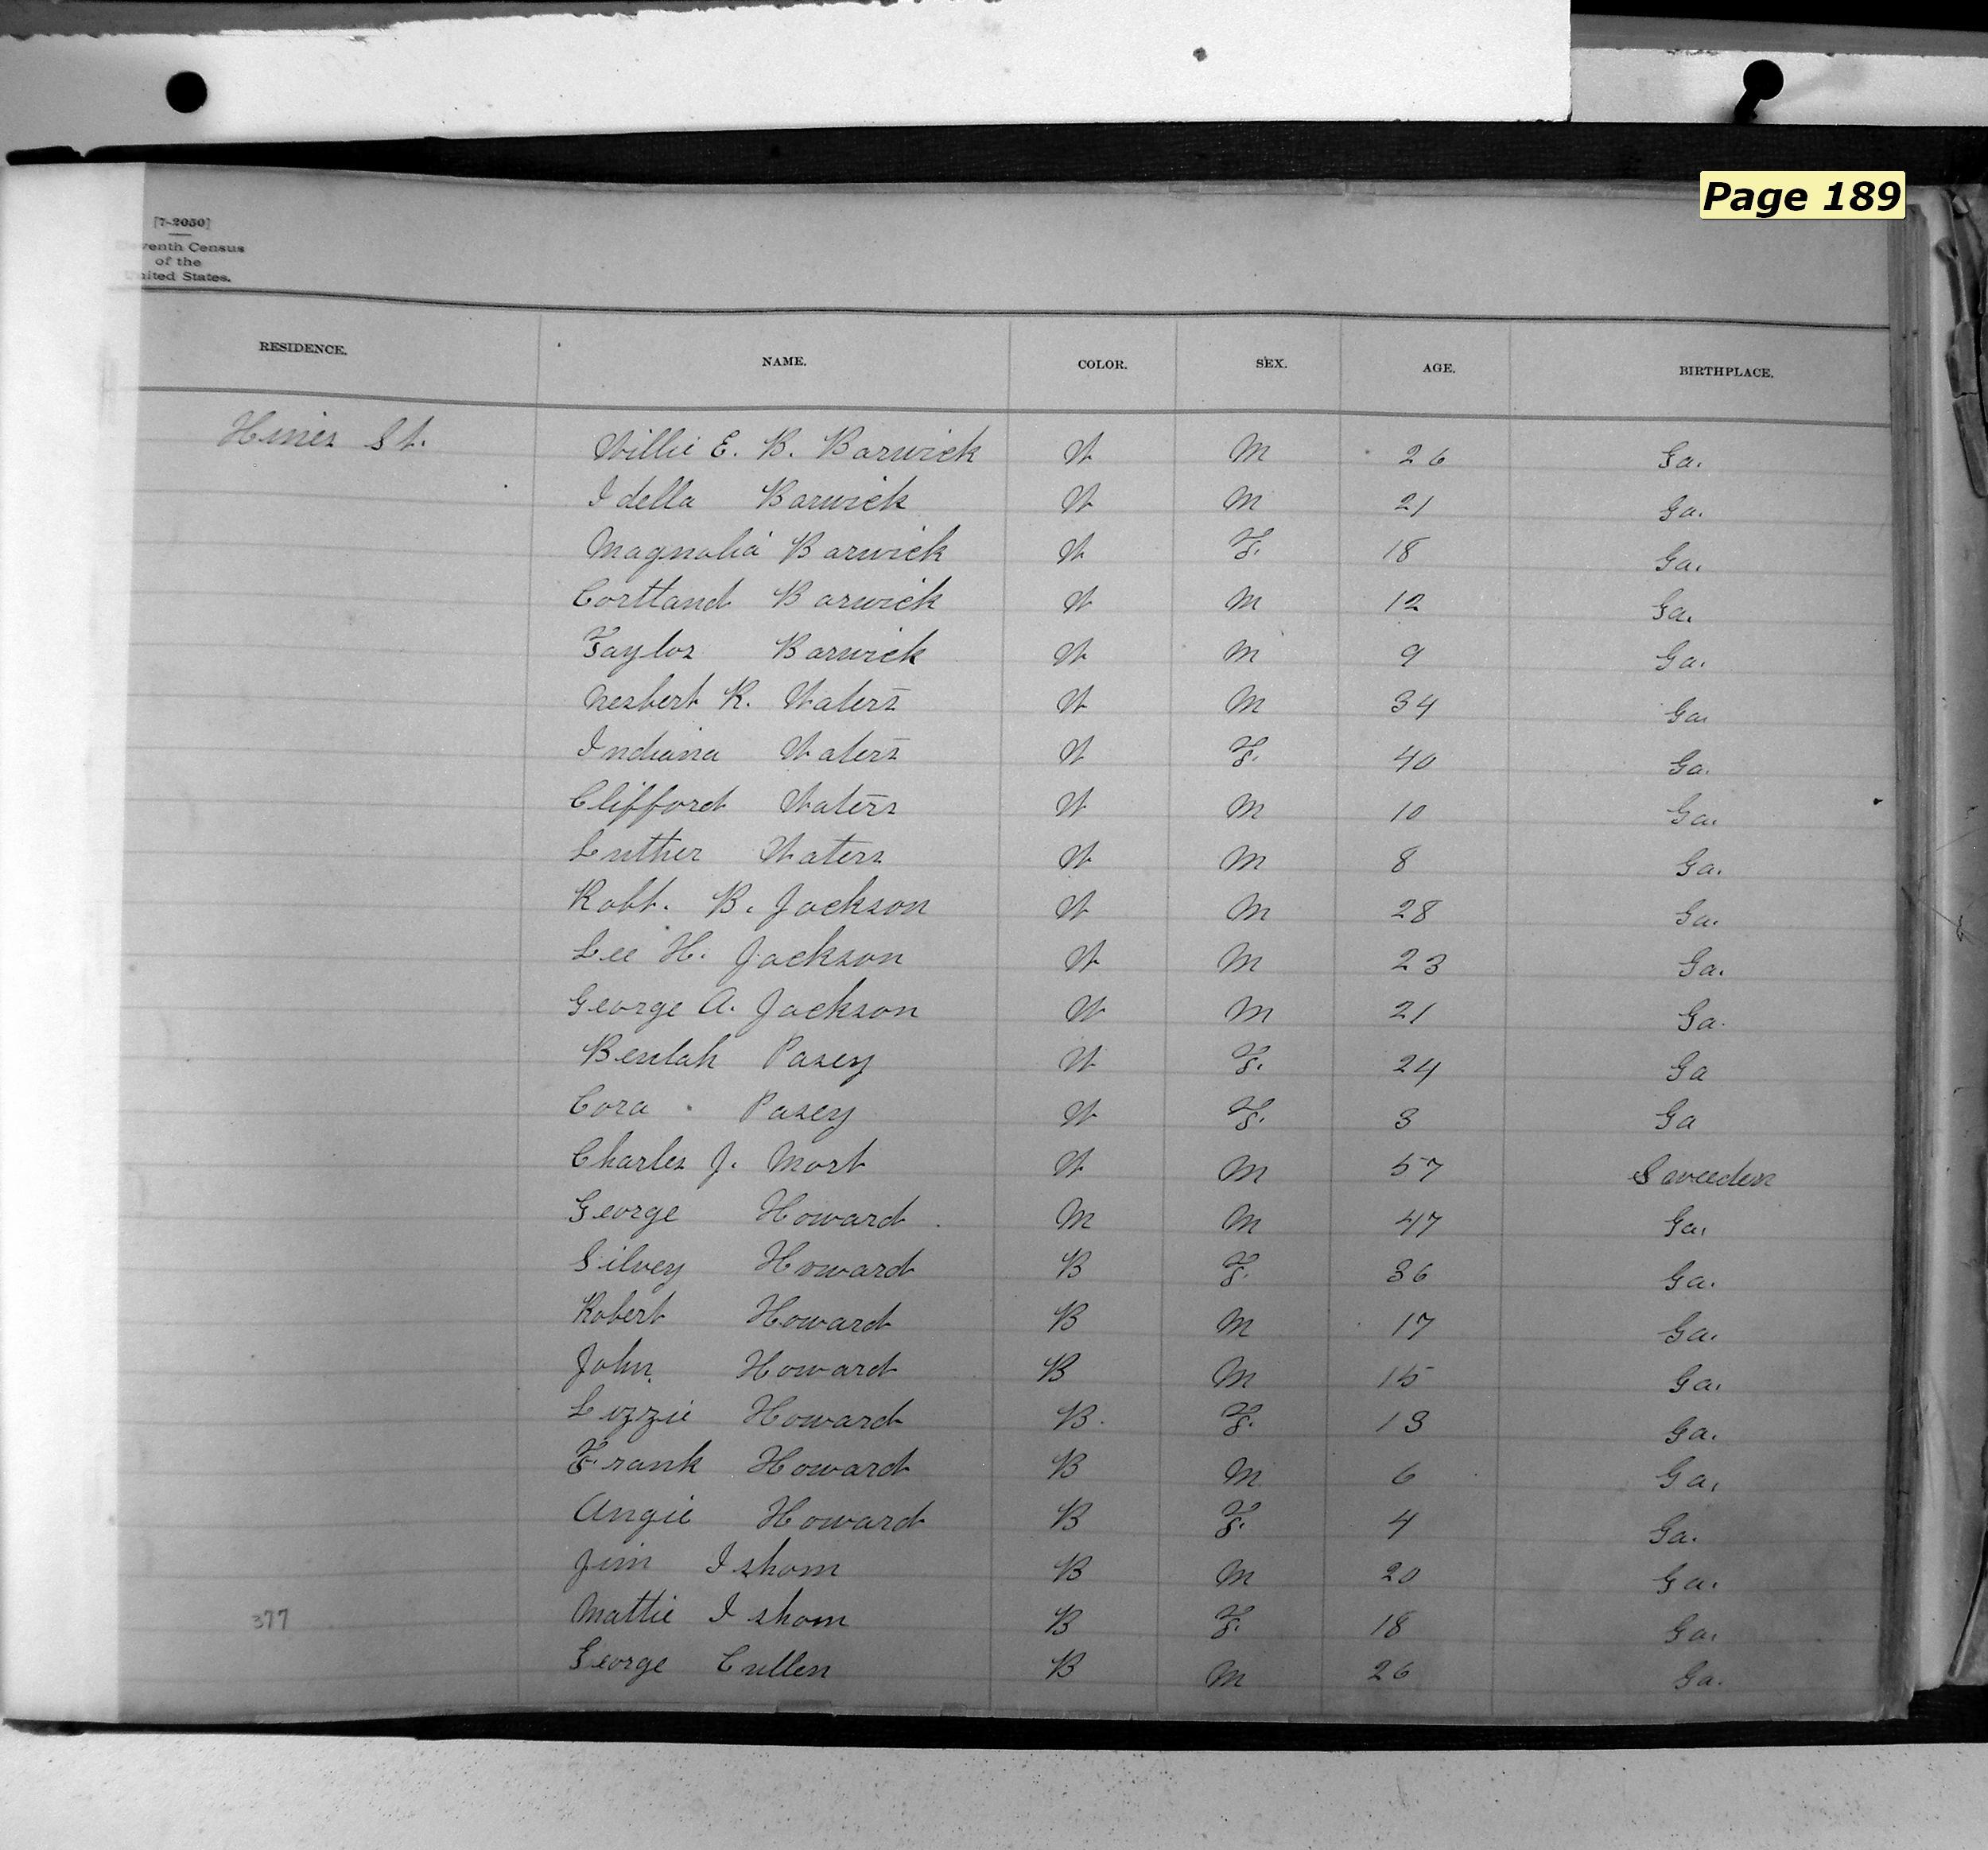 Page 189
[7-2050]
Eleventh Census
of the
United States.
RESIDENCE. NAME. COLOR. SEX. AGE. BIRTHPLACE.
Hines St. Willie E. B. Barwick W M 26 Ga.
Idella Barwick W M 21 Ga.
Magnolia Barwick W F. 18 Ga.
Cortland Barwick W M 12 Ga.
Taylor Barwick W M 9 Ga.
Nesbert R. Waters W M 34 Ga.
Indiana Waters W F. 40 Ga.
Clifford Waters W M 10 Ga.
Luther Waters W M 8 Ga.
Robt. B. Jackson W M 28 Ga.
Lee H. Jackson W M 23 Ga.
George A. Jackson W M 21 Ga.
Beulah Pasey W F. 24 Ga
Cora Pasey W F. 3 Ga
Charles J. Mort W M 57 Sweeden
George Howard M M 47 Ga.
Silvey Howard B F. 36 Ga.
Robert Howard B M 17 Ga.
John Howard B M 15 Ga.
Lizzie Howard B. F. 13 Ga.
Frank Howard B M 6 Ga.
Angie Howard B F. 4 Ga.
Jim Ishom B M 20 Ga.
377 Mattie Ishom B F. 18 Ga.
George Cullen B M 26 Ga.